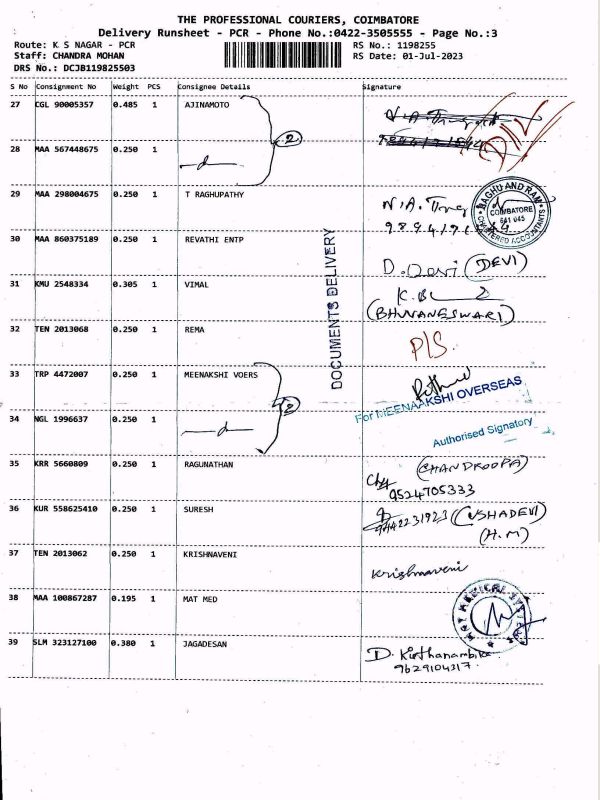 THE PROFESSIONAL COURIERS, COIMBATORE
Delivery Runsheet - PCR - Phone No.:0422-3505555 - Page No.:3
Route: K S NAGAR - PCR
RS No.: 1198255
Staff: CHANDRA MOHAN
RS Date: 01-Jul-2023
DRS No.: DCJB119825503
S No Consignment No Weight PCS Consignee Details Signature
27 CGL 90005357 0.485 1 AJINAMOTO
2
28 MAA 567448675 0.250 1
29 MAA 298004675 0.250 1 T RAGHUPATHY N.A.
RAGHU AND RAM
COIMBATORE
641 045
CHARTERED ACCOUNTANTS
30 MAA 860375189 0.250 1 REVATHI ENTP D. Devi (DEVI)
DOCUMENTS DELIVERY
31 KMU 2548334 0.305 1 VIMAL K.B
(BHUVANESWARI)
32 TEN 2013068 0.250 1 REMA P/S.
33 TRP 4472007 0.250 1 MEENAKSHI VOERS
2
For MEENAAKSHI OVERSEAS
34 NGL 1996637 0.250 1
Authorised Signatory
35 KRR 5660809 0.250 1 RAGUNATHAN (CHANDROOPA)
9524705333
36 KUR 558625410 0.250 1 SURESH 9442231923 (USHADEVI)
(H.M)
37 TEN 2013062 0.250 1 KRISHNAVENI Krishnaveni
38 MAA 100867287 0.195 1 MAT MED
39 SLM 323127100 0.380 1 JAGADESAN D. Kirthanambika
9629104317